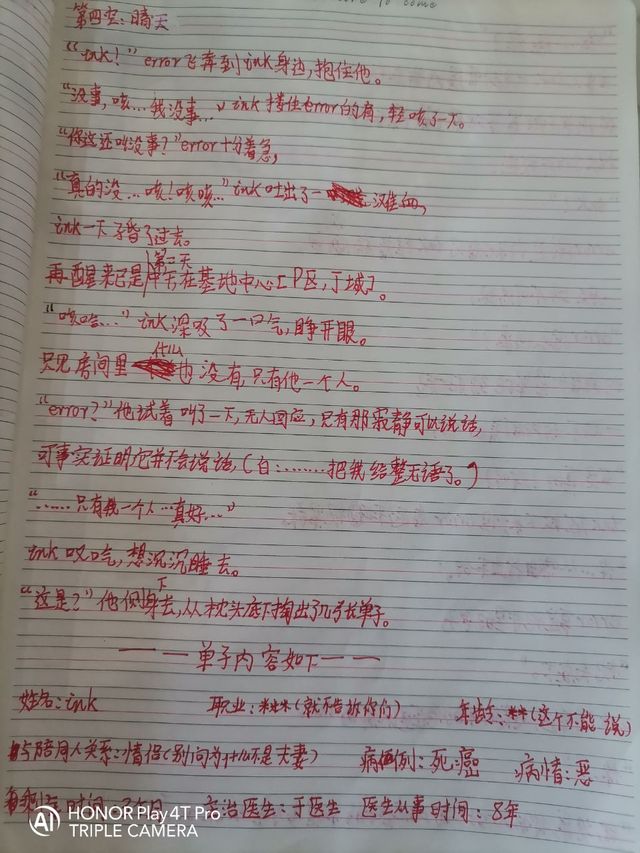 to come
第四空:晴天
“ink!”error飞奔到ink身边,抱住他。
“没事,咳…我没事…”ink搭住error的肩,轻咳了一下。
“你这还叫没事?”error十分着急,
“真的没…咳!咳咳…”ink吐出了一滩血,
ink一下子昏了过去。
再醒来已是第二天
在基地中心[P区,丁城]。
“咳哈…”ink深吸了一口气,睁开眼。
只见房间里什么也没有,只有他一个人。
“error?”他试着叫了一下,无人回应,只有那寂静可以说话,
可事实证明它并不会说话,(白:……把我给整无语了。)
“……只有我一个人…真好…”
ink叹口气,想沉沉睡去。
“这是?”他侧身下去,从枕头底下掏出了几张单子。
——单子内容如下——
姓名:ink 职业:***(就不告诉你们) 年龄:**(这个不能说)
与陪同人关系:情侣(别问为什么不是夫妻) 病例:死癌 病情:恶
时间: 主治医生:于医生 医生从事时间:8年
AI HONOR Play4T Pro
TRIPLE CAMERA